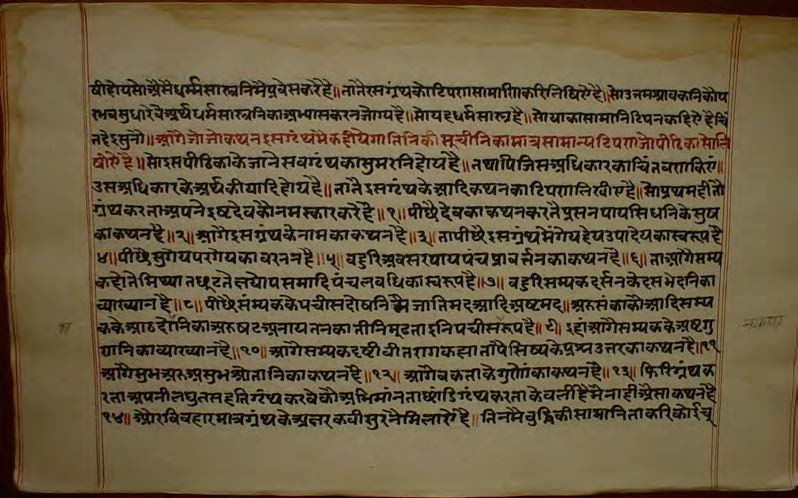 वी होय सो असै धर्म्मसास्त्रनि मै प्रवेस करै है ॥ तातै इस ग्रंथ को टिपण सामाणि करि लिषिऐ है ॥ सो उत्तम श्रावकनि कौ प
रभव सुधारवे अर्थ धर्म सास्त्रनि का अभ्यास करन जोग्य है ॥ सो यह धर्म सास्त्र है ॥ सो या का सामानि टिपन कहिऐ है
त है इ सुनो ॥ आगै जो जो कथन इस ग्रंथ मै कहीयेगा तिनि की सूचीनिका मात्र सामान्य टिपण जो पीठिका सो लि
षीऐ है ॥ सो इस पीठिका के जाने सब ग्रंथ का सुमरनि होय है ॥ तथापि जिस अधिकार का चिंतवण किऐ ॥
उस अधिकार के अर्थ की यादि होय है ॥ तातै इस ग्रंथ के आदि कथन का टिपण लिषीऐ है ॥ सो प्रथम ही तो
ग्रंथ करता अपने इष्ट देव कौ नमस्कार करै है ॥ १ ॥ पीछै देव का कथन करतै प्रसन पाय सिधनि के सुष
का कथन है ॥ २ ॥ आगै इस ग्रंथ के नाम का कथन है ॥ ३ ॥ ता पीछै इस ग्रंथ मै गेय हेय उपादेय का स्वरूप है
४ ॥ पीछै सुगेय परगेय का वरनन है ॥ ५ ॥ बहुरि अवसर पाय पंच प्रावर्त्तन का कथन है ॥ ६ ॥ ता आगै सम्य
क होते मिथ्यात छूटते षयोपसमादि पंच लबधि का स्वरूप है ॥ ७ ॥ बहुरि सम्यक दर्सन के दस भेदनि का
व्याख्यान है ॥ ८ ॥ पीछै संम्यक के पचीस दोषनि मै जाति मद आदि अष्ट मद ॥ अरु संका कौ आदि सम्य
क के आठ दोनि का अरु षट अनायतन का तीनि मूढता इनि पचीस रूप है ॥ ९ ॥ इहां आगै सम्यक के अष्ट गु
णनि का व्याख्यान है ॥ १० ॥ आगै सम्यक दृष्टी वीतराग कह्या तापै सिष्य के प्रश्न उत्तर का कथन है ॥ ११
आगै सुभ अरु असुभ श्रोतानि का कथन है ॥ १२ ॥ आगै वकता के गुणों का कथन है ॥ १३ ॥ फिरि ग्रंथ क
रता अपनी लघुता सहति ग्रंथ करवे कौ अभिमान ता छांडि ग्रंथ करता केवली है मै नाही असा कथन है
१४ ॥ और विवहार मात्र ग्रंथ के अक्षर कवीसुर ने मिलाऐ है ॥ तिन मै बुद्धि की सामानिता करि कोई चू